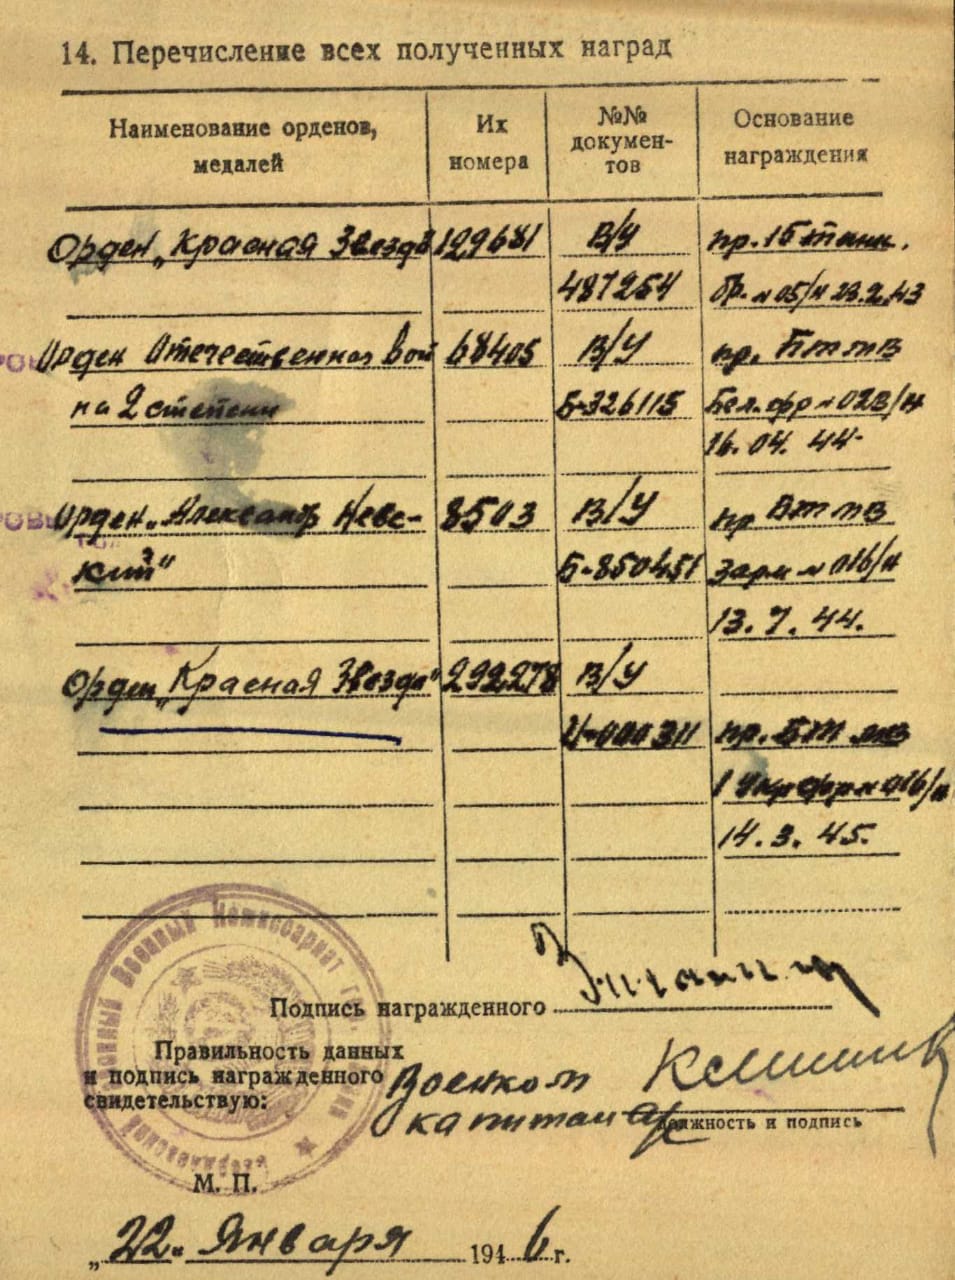 14. Перечисление всех полученных наград
Наименование орденов,
медалей
Их
номера
№№
докумен-
тов
Основание
награждения
Орден „Красная Звезда 129681 В/У пр. 16 танк.
487254 бр. № 05/н 23.2.43
Орден Отечественная вой 68405 В/У пр. БТ МВ
на 2 степени Б-326115 Бел. фр № 02В/н
16. 04. 44
Орден „Александр Невс- 8503 В/У пр БТ МВ
кий" Б-850451 № 016/н
13. 7. 44.
Орден „Красная Звезда" 292278 В/У
000311 пр. БТ МВ
1 Укр фр № 016/н
14. 3. 45.
Подпись награжденного
Правильность данных
и подпись награжденного
свидетельствую:
Военком
капитан
должность и подпись
Военный Комиссариат
М. П.
„22" Января 1946 г.